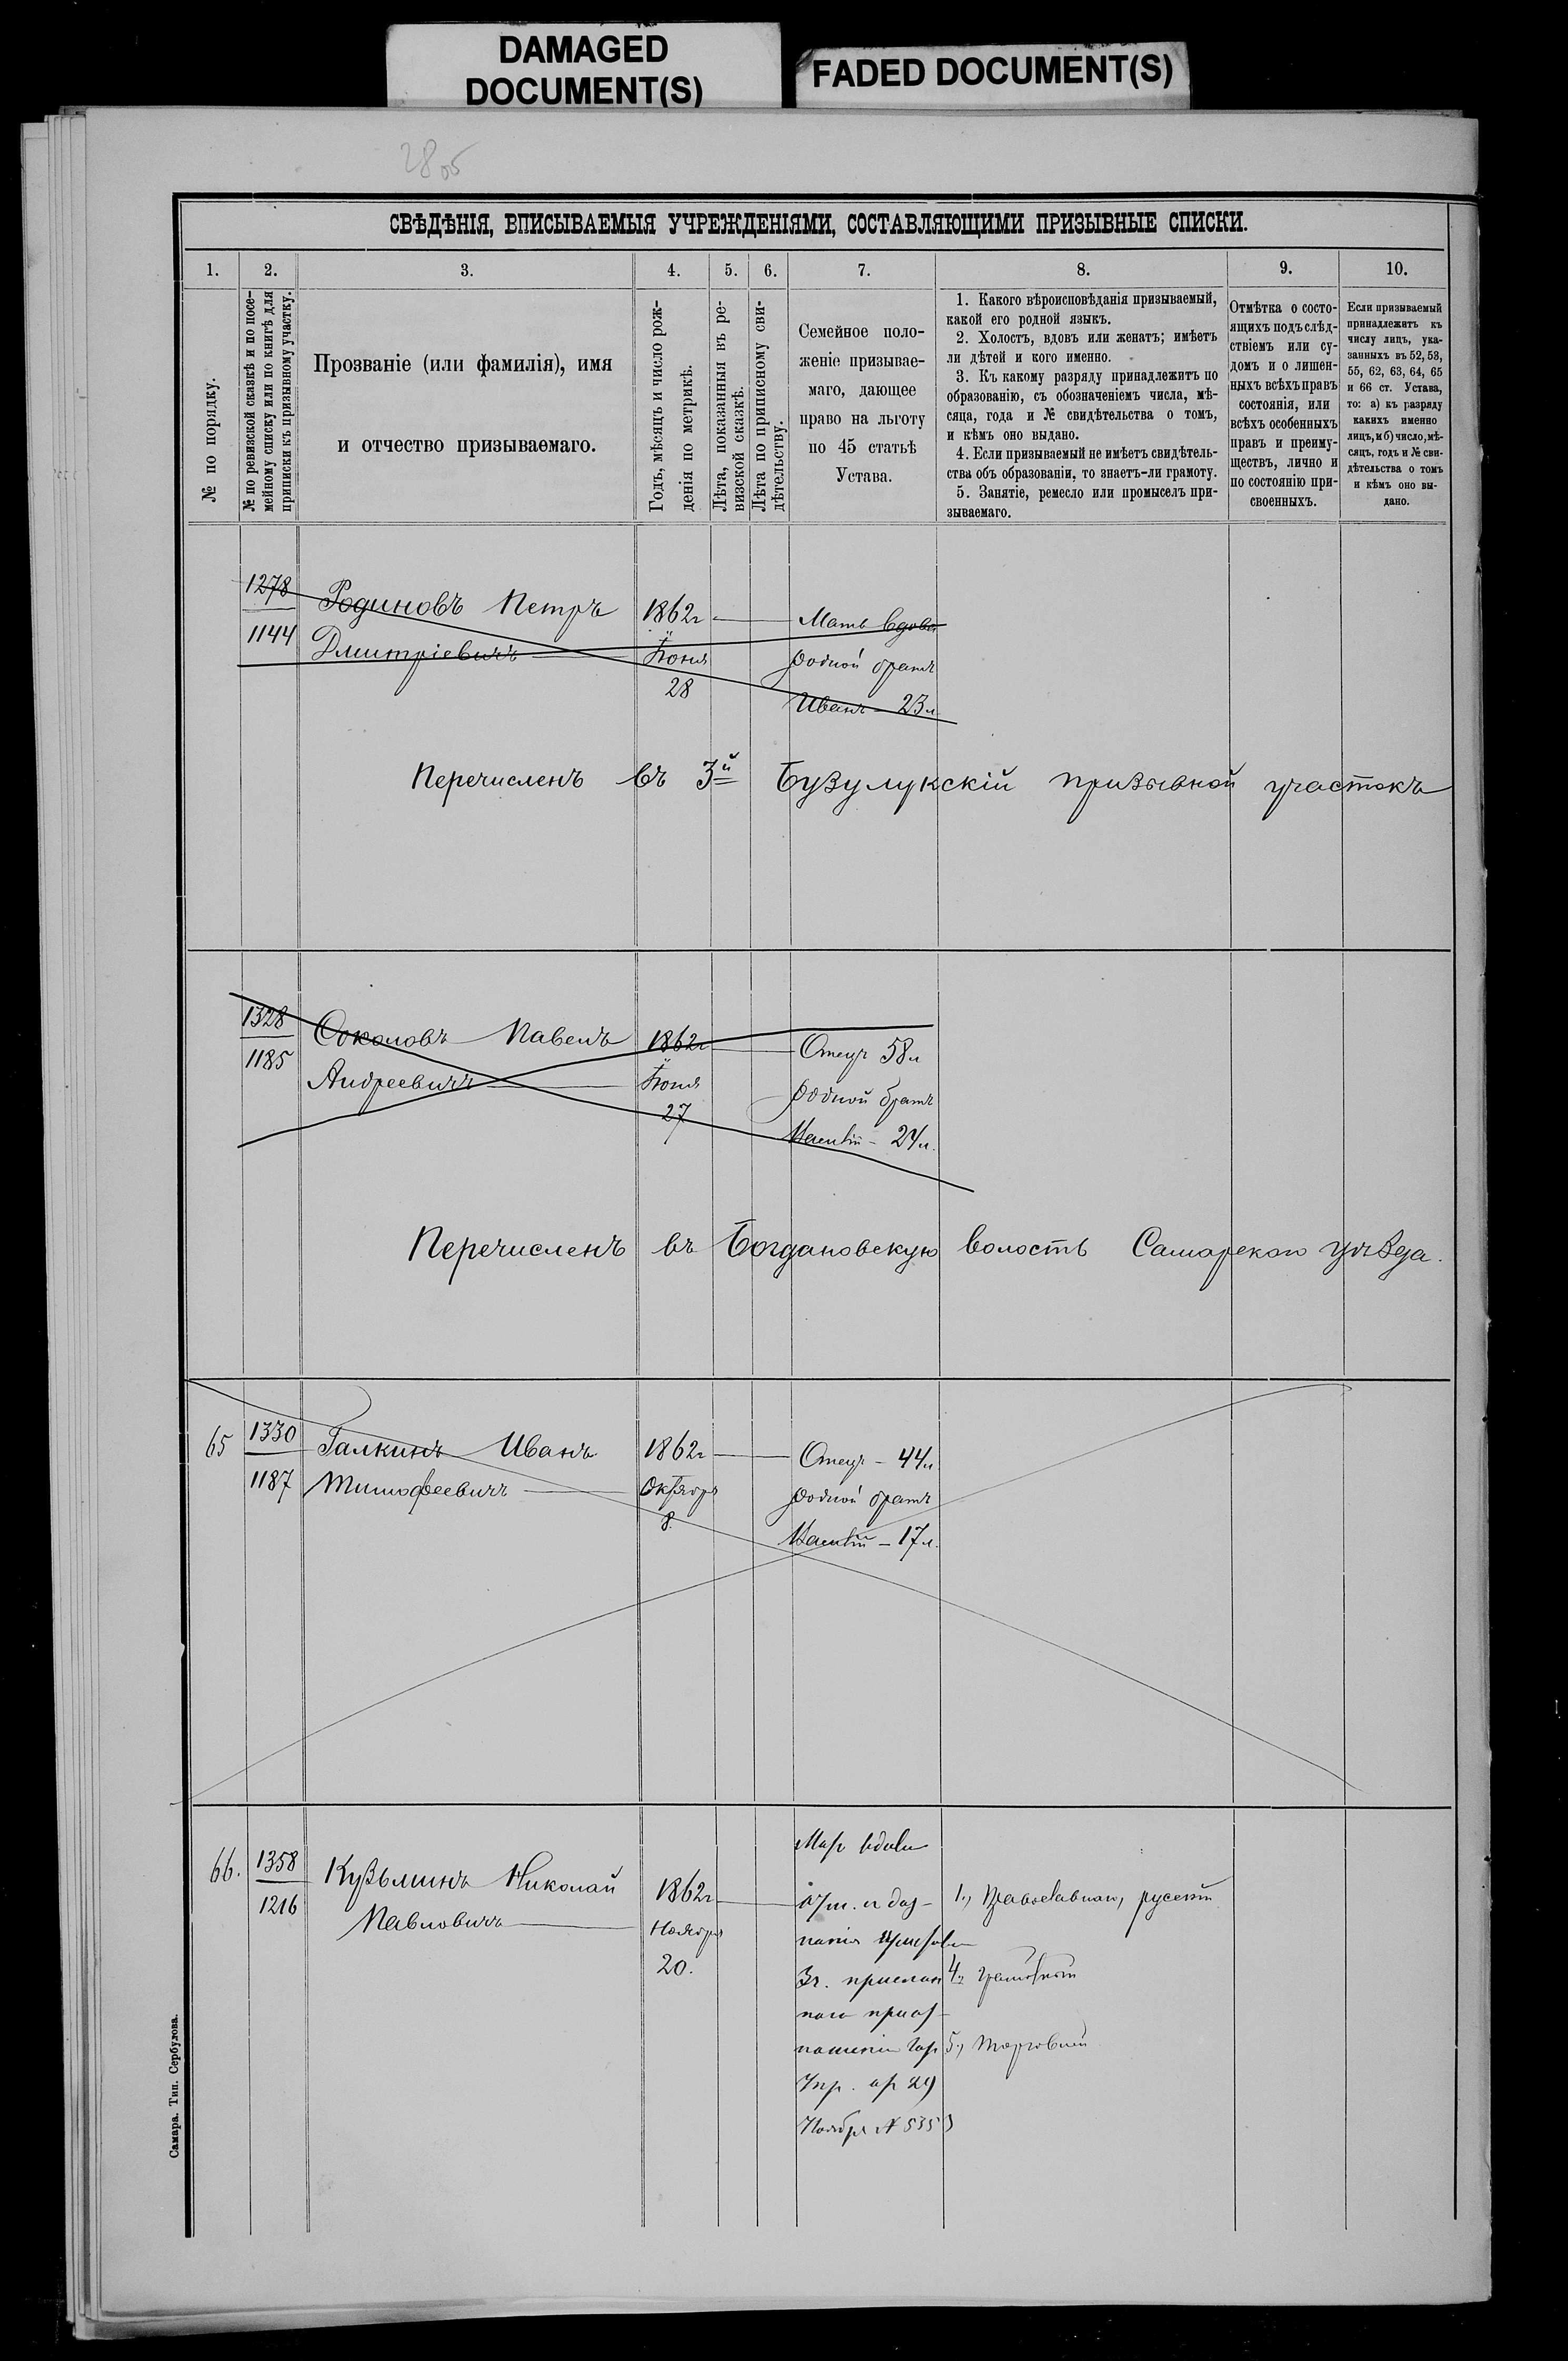 DAMAGED
DOCUMENT(S)
FADED DOCUMENT(S)
2805
СВѢДѢНІЯ, ВПИСЫВАЕМЫЯ УЧРЕЖДЕНІЯМИ, СОСТАВЛЯЮЩИМИ ПРИЗЫВНЫЕ СПИСКИ.
1. 2. 3. 4. 5. 6. 7. 8. 9. 10.
№ по порядку.
№ по ревизской сказкѣ и по посе-
мейному списку или по книгѣ для
приписки къ призывному участку.
Прозваніе (или фамилія), имя
и отчество призываемаго.
Годъ, мѣсяцъ и число рож-
денія по метрикѣ.
Лѣта, показанныя въ ре-
визской сказкѣ.
Лѣта по приписному сви-
дѣтельству.
Семейное поло-
женіе призывае-
маго, дающее
право на льготу
по 45 статьѣ
Устава.
1. Какого вѣроисповѣданія призываемый,
какой его родной языкъ.
2. Холостъ, вдовъ или женатъ; имѣетъ
ли дѣтей и кого именно.
3. Къ какому разряду принадлежитъ по
образованію, съ обозначеніемъ числа, мѣ-
сяца, года и № свидѣтельства о томъ,
и кѣмъ оно выдано.
4. Если призываемый не имѣетъ свидѣтель-
ства объ образованіи, то знаетъ-ли грамоту.
5. Занятіе, ремесло или промыселъ при-
зываемаго.
Отмѣтка о состо-
ящихъ подъ слѣд-
ствіемъ или су-
домъ и о лишен-
ныхъ всѣхъ правъ
состоянія, или
всѣхъ особенныхъ
правъ и преиму-
ществъ, лично и
по состоянію при-
своенныхъ.
Если призываемый
принадлежитъ къ
числу лицъ, ука-
занныхъ въ 52, 53,
55, 62, 63, 64, 65
и 66 ст. Устава,
то: а) къ разряду
какихъ именно
лицъ, и б) число, мѣ-
сяцъ, годъ и № сви-
дѣтельства о томъ
и кѣмъ оно вы-
дано.
1278 Родиновъ Петръ 1862г Мать вдова
1144 Дмитріевичъ Іюня родной братъ
28 Иванъ - 23 л
Перечисленъ въ 3й Бузулукскій призывной участокъ
1328 Соколовъ Павелъ 1862г Отецъ 58 л
1185 Андреевичъ Іюня родной братъ
27 24 л.
Перечисленъ въ Богдановскую волость Самарскаго уѣзда.
65 1330 Галкинъ Иванъ 1862г Отецъ - 44 л
1187 Тимофеевичъ Октября родной братъ
8. - 17 л.
Мать вдова
66. 1358 Кузьминъ Николай 1862г
1216 Павловичъ Ноября
20.
1., Православнаго, русскій
4., грамотный
5., торговлей
Ноября №
Самара. Тип. Сербулова.